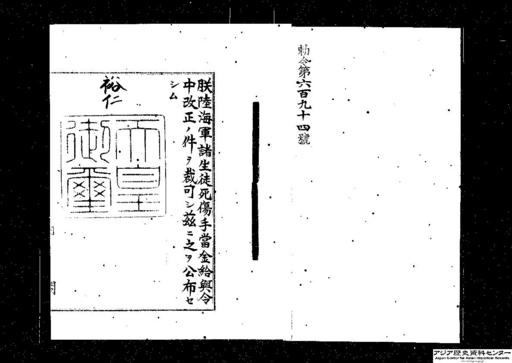 勅令第六百九十四號
朕陸海軍諸生徒死傷手當金給與令
中改正ノ件ヲ裁可シ茲ニ之ヲ公布セ
シム
裕仁
天皇
御璽
アジア歴史資料センター
Japan Center for Asian Historical Records